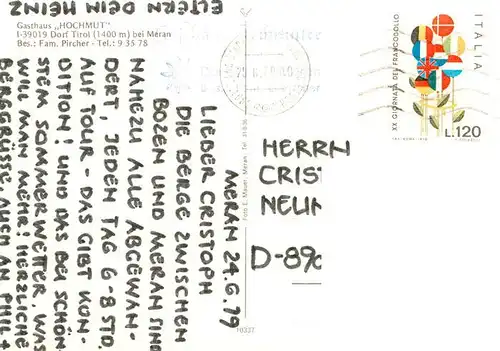 Gasthaus „HOCHMUT"
I-39019 Dorf Tirol (1400 m) bei Meran
Bes.: Fam. Pircher - Tel.: 9 35 78
MERAN 24.6.79
LIEDER CRISTOPH
DIE BERGE ZWISCHEN
BOZEN UND MERAN SIND
NAHEZU ALLE ABGEWAN-
DERT, JEDEN TAG 6-8 STD.
AUF TOUR - DAS GIBT KON-
DITION! UND DAS BEI SCHÖN-
STEM SOMMERWETTER, WAS
WILL MAN MEHR! HERZLICHE
BERGGRÜSSE, AUCH AN PHIL +
ELTERN DEIN HEINZ
Foto E. Mauer, Meran
10337
XX GIORNATA DEL FRANCOBOLLO
ITALIA
L.120
HERRN
CRIST
NEUM
D-89